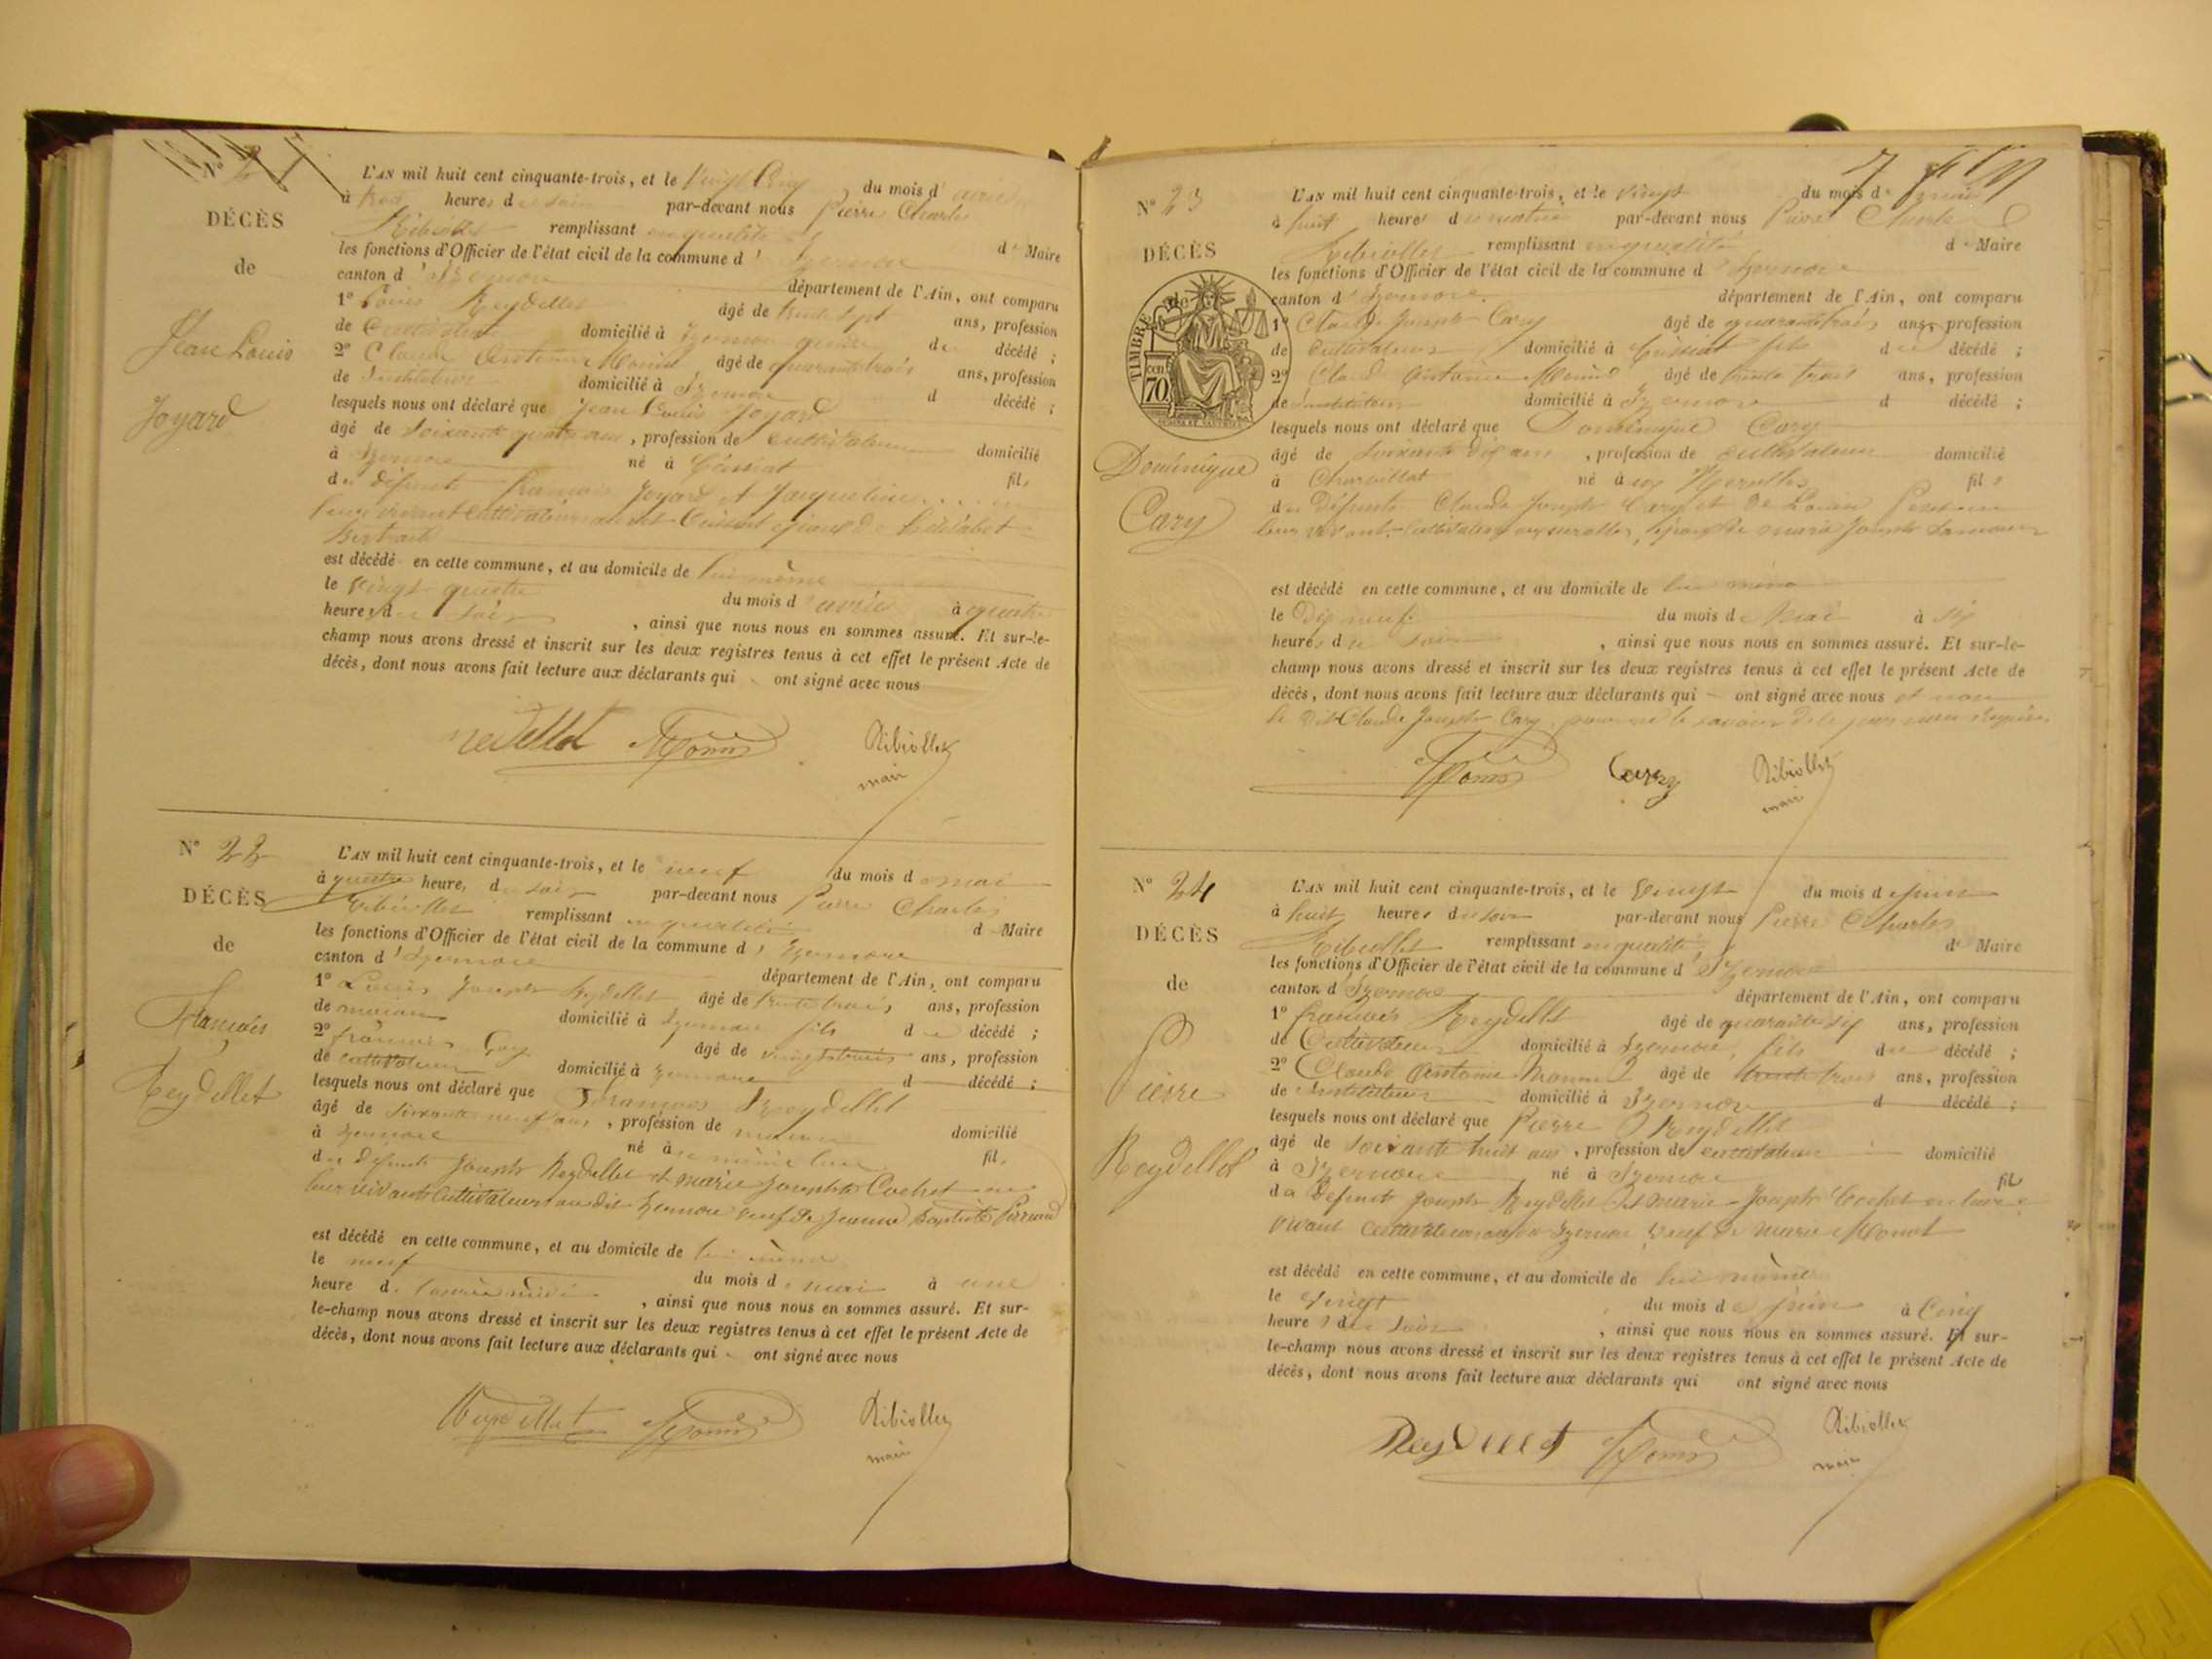 N°
DÉCÈS
de
Jean Louis
Joyard
L'AN mil huit cent cinquante-trois, et le vingt cinq du mois d'avril
à heures du soir par-devant nous Pierre Charles
Ribiollet remplissant en qualité de Maire
les fonctions d'Officier de l'état civil de la commune d'Izernore
canton d'Izernore département de l'Ain, ont comparu
1° Louis Reydellet âgé de trente sept ans, profession
de cultivateur domicilié à Izernore du décédé ;
2° Claude Antoine Monin âgé de quarante trois ans, profession
de Instituteur domicilié à Izernore d décédé ;
lesquels nous ont déclaré que Jean Louis Joyard
âgé de soixante quatre ans, profession de cultivateur domicilié
à Izernore né à Ceissiat fils
du défunt François Joyard et Jacqueline
leur vivant cultivateurs au dit Ceissiat époux de
est décédé en cette commune, et au domicile de lui même
le vingt quatre du mois d'avril à quatre
heures du soir, ainsi que nous nous en sommes assuré. Et sur-le-
champ nous avons dressé et inscrit sur les deux registres tenus à cet effet le présent Acte de
décès, dont nous avons fait lecture aux déclarants qui ont signé avec nous
Monin Ribiollet
maire
N° 22
DÉCÈS
de
François
Reydellet
L'AN mil huit cent cinquante-trois, et le neuf du mois de mai
à quatre heure, du soir par-devant nous Pierre Charles
Ribiollet remplissant en qualité de Maire
les fonctions d'Officier de l'état civil de la commune d'Izernore
canton d'Izernore département de l'Ain, ont comparu
1° Louis Joseph Reydellet âgé de trente trois ans, profession
de maçon domicilié à Izernore fils du décédé ;
2° François Goy âgé de ans, profession
de cultivateur domicilié à Izernore d décédé ;
lesquels nous ont déclaré que François Reydellet
âgé de soixante neuf ans, profession de maçon domicilié
à Izernore né à ce même lieu fils
du défunt Joseph Reydellet et marie Josephte Cochet en
leur vivant Cultivateurs au dit Izernore veuf de Jeanne Baptiste
est décédé en cette commune, et au domicile de lui même
le neuf du mois de mai à une
heure de l'après midi, ainsi que nous nous en sommes assuré. Et sur-
le-champ nous avons dressé et inscrit sur les deux registres tenus à cet effet le présent Acte de
décès, dont nous avons fait lecture aux déclarants qui ont signé avec nous
Reydellet Monin Ribiollet
maire
N° 23
DÉCÈS
de
TIMBRE
70
Dominique
Cary
L'AN mil huit cent cinquante-trois, et le vingt du mois de mai
à huit heures du matin par-devant nous Pierre Charles
Ribiollet remplissant en qualité de Maire
les fonctions d'Officier de l'état civil de la commune d'Izernore
canton d'Izernore département de l'Ain, ont comparu
1° Claude Joseph Cary âgé de quarante trois ans, profession
de Cultivateur domicilié à Ceissiat fils du décédé ;
2° Claude Antoine Monin âgé de trente trois ans, profession
de instituteur domicilié à Izernore d décédé ;
lesquels nous ont déclaré que Dominique Cary
âgé de soixante dix ans, profession de cultivateur domicilié
à Charvillat né à fils
du défunt Claude Joseph Cary et de Louise
leur vivant Cultivateurs époux de marie Josephte
est décédé en cette commune, et au domicile de lui même
le Dix neuf du mois de Mai à six
heures du soir, ainsi que nous nous en sommes assuré. Et sur-le-
champ nous avons dressé et inscrit sur les deux registres tenus à cet effet le présent Acte de
décès, dont nous avons fait lecture aux déclarants qui ont signé avec nous et non
le dit Claude Joseph Cary pour ne le savoir
Monin Cary Ribiollet
maire
N° 24
DÉCÈS
de
Pierre
Reydellet
L'AN mil huit cent cinquante-trois, et le vingt du mois de juin
à huit heures du soir par-devant nous Pierre Charles
Ribiollet remplissant en qualité de Maire
les fonctions d'Officier de l'état civil de la commune d'Izernore
canton d'Izernore département de l'Ain, ont comparu
1° François Reydellet âgé de quarante six ans, profession
de Cultivateur domicilié à Izernore, fils du décédé ;
2° Claude Antoine Monin âgé de trente trois ans, profession
de Instituteur domicilié à Izernore d décédé ;
lesquels nous ont déclaré que Pierre Reydellet
âgé de soixante huit ans, profession de cultivateur domicilié
à Izernore né à Izernore fils
du défunt Joseph Reydellet et marie Josephte Cochet en leur
vivant cultivateurs au dit Izernore veuf de marie Monet
est décédé en cette commune, et au domicile de lui même
le vingt du mois de juin à Cinq
heures du soir, ainsi que nous nous en sommes assuré. Et sur-
le-champ nous avons dressé et inscrit sur les deux registres tenus à cet effet le présent Acte de
décès, dont nous avons fait lecture aux déclarants qui ont signé avec nous
Reydellet Monin Ribiollet
maire